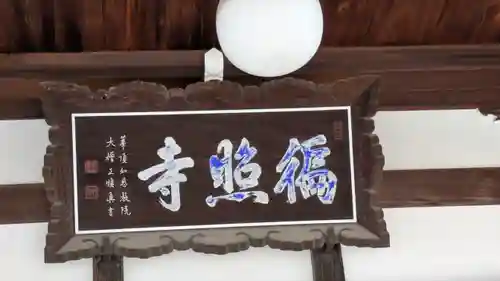 福照寺
華頂知恩教院
大僧正順真書